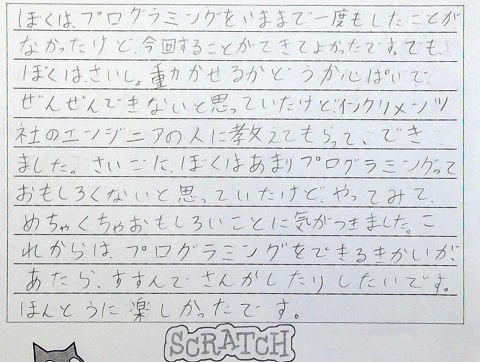 ぼくは、プログラミングをいままで一度もしたことが
なかったけど、今回することができてよかったです。でも、
ぼくは、さいしょ動かせるかどうか心ぱいで、
ぜんぜんできないと思っていたけどインクリメンツ
社のエンジニアの人に教えてもらって、でき
ました。さいごに、ぼくはあまりプログラミングって
おもしろくないと思っていたけど、やってみて、
めちゃくちゃおもしろいことに気がつきました。こ
れからは、プログラミングをできるきかいが、
あたら、すすんでさんかしたりしたいです。
ほんとうに楽しかったです。
SCRATCH